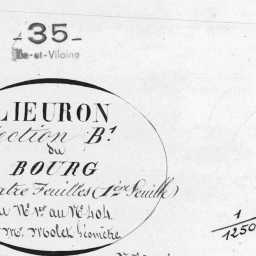 -35-
Ille-et-Vilaine
LIEURON
Section B¹
du
BOURG
Feuilles (1ère Feuille)
N° 1er au N° 404
Mr. Molet Géomètre
1
1250